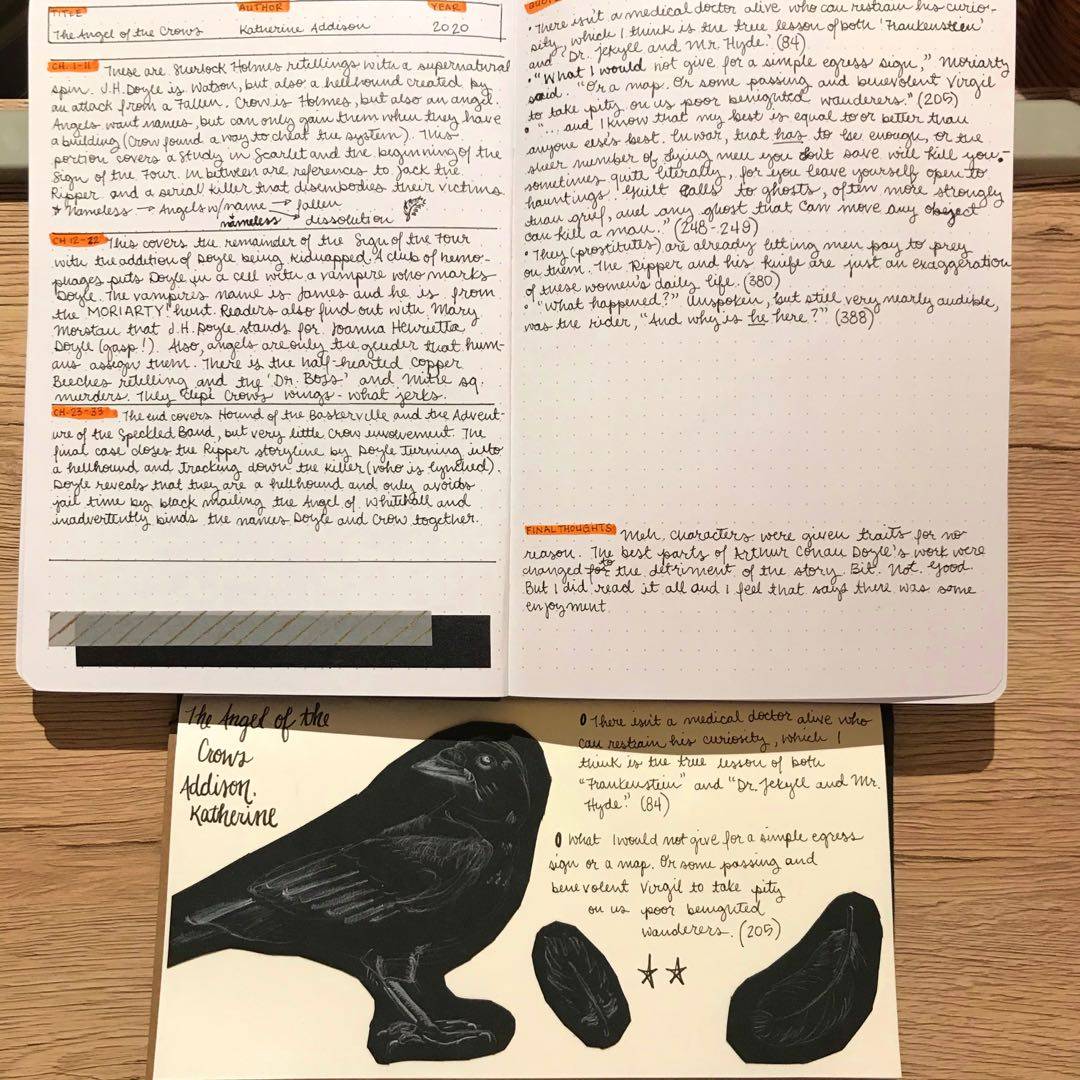 TITLE AUTHOR YEAR
The Angel of the Crows Katherine Addison 2020
CH. 1-11 These are Sherlock Holmes retellings with a supernatural
spin. J.H. Doyle is Watson, but also a hellhound created by
an attack from a Fallen. Crow is Holmes, but also an angel.
Angels want names, but can only gain them when they have
a building (Crow found a way to cheat the system). This
portion covers a Study in Scarlet and the beginning of the
Sign of the Four. In between are references to Jack the
Ripper and a serial killer that disembodies their victims.
* Nameless → Angels w/name → fallen
nameless → dissolution
CH 12-22 This covers the remainder of the Sign of the Four
with the addition of Doyle being kidnapped. A club of hemo-
phages puts Doyle in a cell with a vampire who marks
Doyle. The vampires name is James and he is from
the "MORIARTY" hunt. Readers also find out with Mary
Morstan that J.H. Doyle stands for Joanna Henrietta
Doyle (gasp!). Also, angels are only the gender that hum-
ans assign them. There is the half-hearted Copper
Beeches retelling and the 'Dr. Boss' and Mitre sq.
murders. They clept Crows wings - what jerks.
CH-23-33 The end covers Hound of the Baskerville and the Advent-
ure of the Speckled Band, but very little Crow involvement. The
final case closes the Ripper storyline by Doyle Turning into
a hellhound and Tracking down the killer (who is lynched).
Doyle reveals that they are a hellhound and only avoids
jail time by black mailing the Angel of Whitehall and
inadvertently binds the names Doyle and Crow together.
• There isn't a medical doctor alive who can restrain his curio-
sity, which I think is the true lesson of both 'Frankenstein'
and 'Dr. Jekyll and Mr. Hyde.' (84)
• "What I would not give for a simple egress sign," Moriarty
said. "Or a map. Or some passing and benevolent Virgil
to take pity on us poor benighted wanderers." (205)
• "... and I know that my best is equal to or better than
anyone else's best. In war, that has to be enough, or the
sheer number of dying men you don't save will kill you -
sometimes quite literally, for you leave yourself open to
hauntings. Guilt calls to ghosts, often more strongly
than grief, and any ghost that can move any object
can kill a man." (248-249)
• They (prostitutes) are already letting men pay to prey
on them. The Ripper and his knife are just an exaggeration
of these women's daily life. (380)
• "What happened?" Unspoken, but still very nearly audible,
was the rider, "And why is he here?" (388)
FINAL THOUGHTS: Meh, characters were given traits for no
reason. The best parts of Arthur Conan Doyle's work were
changed to the detriment of the story. Bit. Not. Good.
But I did read it all and I feel that says there was some
enjoyment.
The Angel of the
Crows
Addison,
Katherine
There isn't a medical doctor alive who
can restrain his curiosity, which I
think is the true lesson of both
"Frankenstein" and "Dr. Jekyll and Mr.
Hyde." (84)
What I would not give for a simple egress
sign or a map. Or some passing and
benevolent Virgil to take pity
on us poor benighted
wanderers. (205)